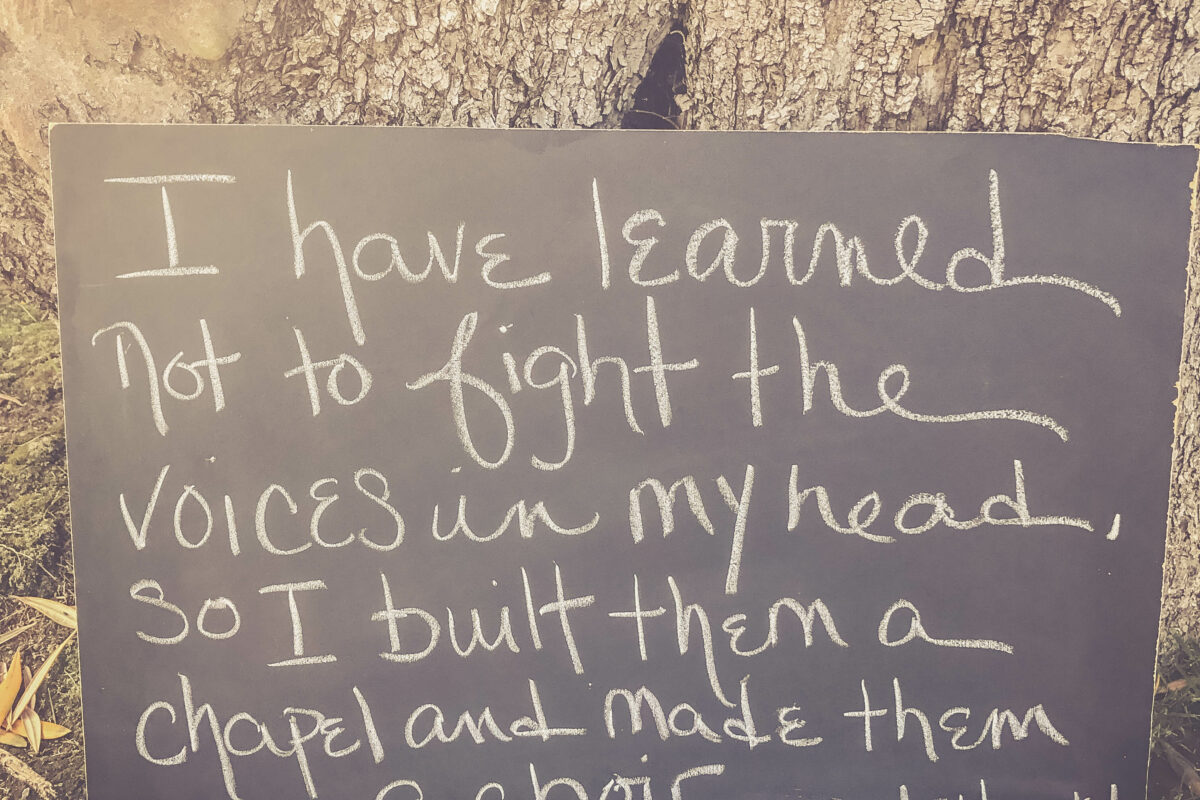 I have learned
not to fight the
voices in my head,
so I built them a
chapel and made them
a choir